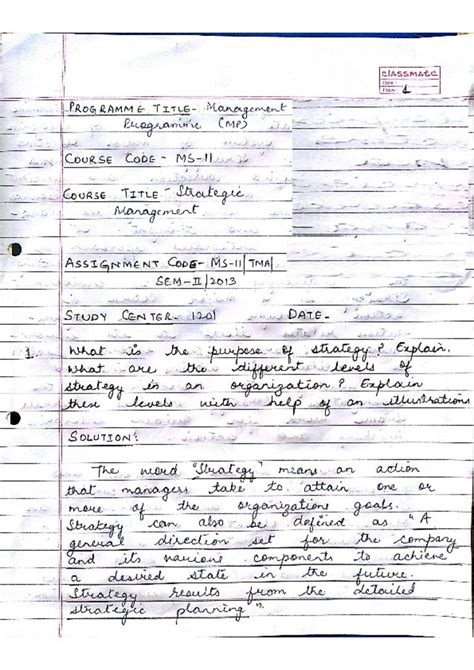 classmate
Date
Page 1
PROGRAMME TITLE- Management
Programme (MP)
COURSE CODE - MS-11
COURSE TITLE - Strategic
Management
ASSIGNMENT CODE- MS-11/TMA/
SEM-II/2013
STUDY CENTER- 1201 DATE-
1. What is the purpose of strategy? Explain.
What are the different levels of
strategy in an organization? Explain
these levels with help of an illustrations
SOLUTION:
The word "Strategy" means an action
that managers take to attain one or
more of the organizations goals.
Strategy can also be defined as "A
general direction set for the company
and its various components to achieve
a desired state in the future.
Strategy results from the detailed
strategic planning".